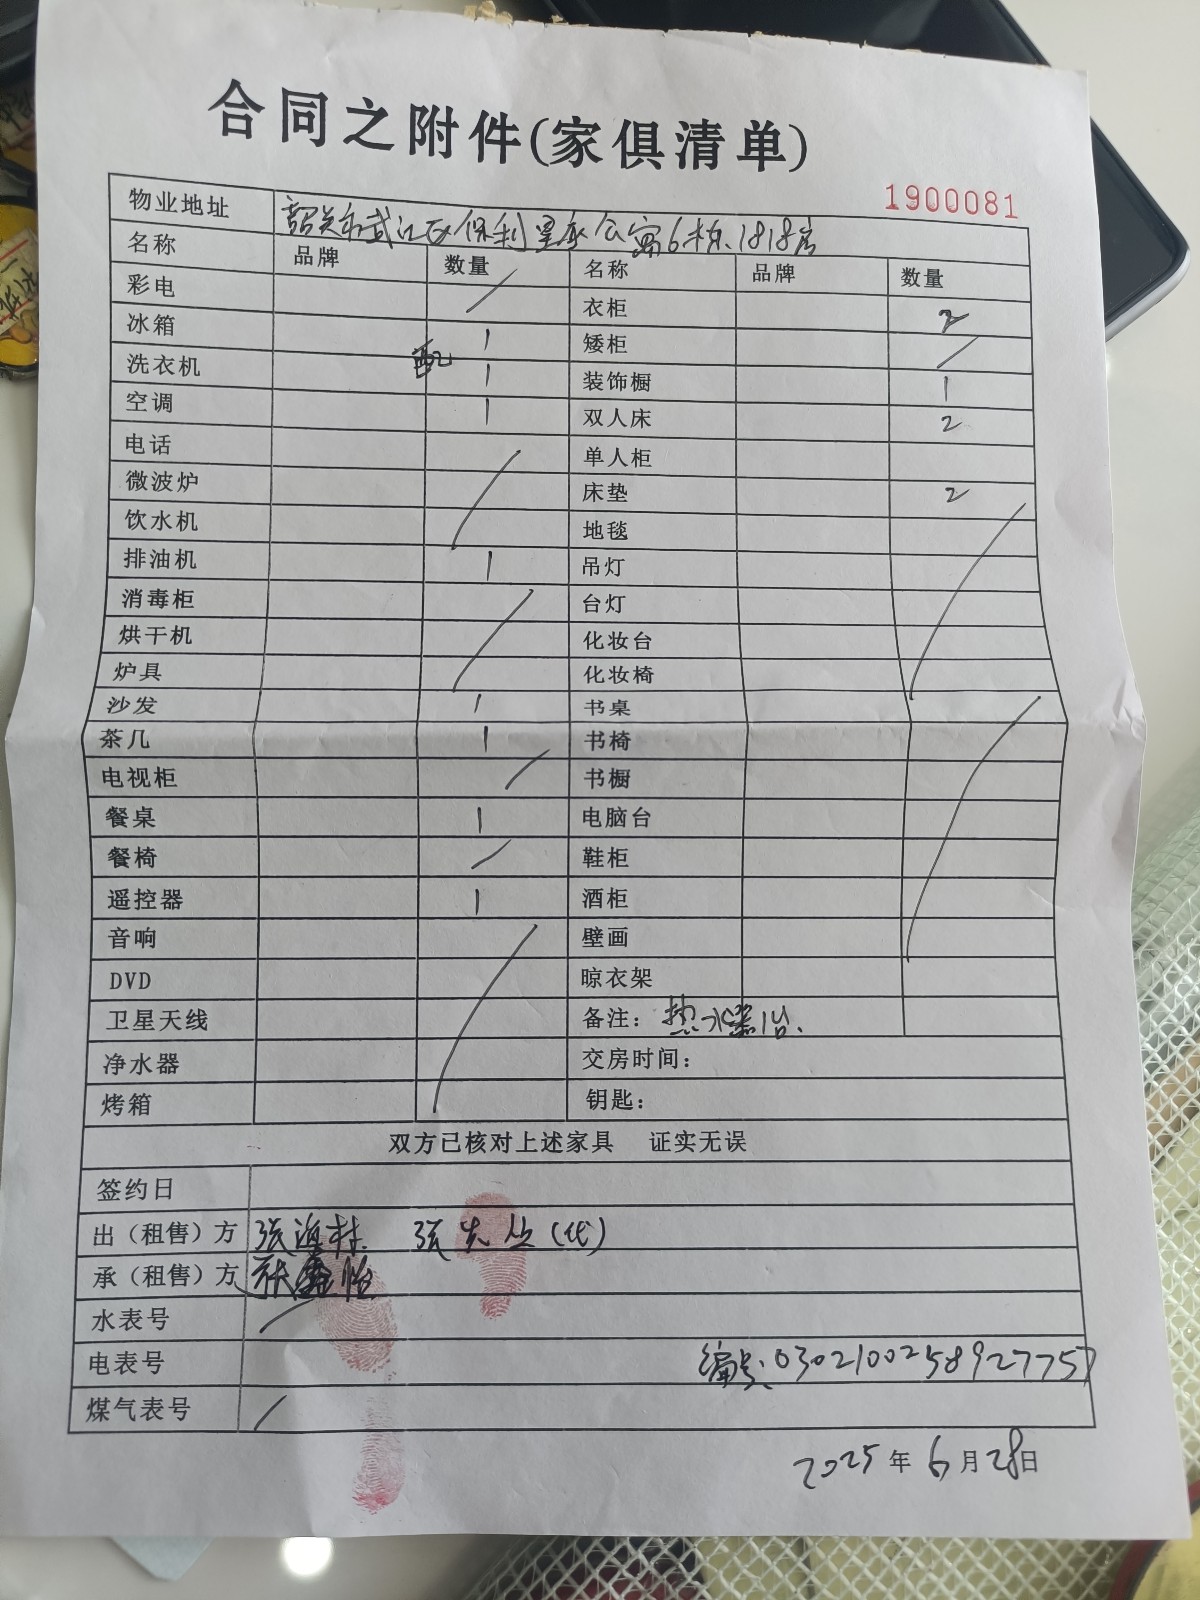 合同之附件(家俱清单)
1900081
物业地址 韶关市武江区保利 公寓6栋1818房
名称 品牌 数量 名称 品牌 数量
彩电 / 衣柜 2
冰箱 1 矮柜 /
洗衣机 配 1 装饰橱 1
空调 1 双人床 2
电话 单人柜
微波炉 / 床垫 2
饮水机 地毯
排油机 1 吊灯
消毒柜 台灯 /
烘干机 / 化妆台
炉具 化妆椅
沙发 1 书桌
茶几 1 书椅
电视柜 / 书橱
餐桌 1 电脑台 /
餐椅 / 鞋柜
遥控器 1 酒柜
音响 壁画
DVD 晾衣架
卫星天线 / 备注：热水器1台.
净水器 交房时间：
烤箱 钥匙：
双方已核对上述家具 证实无误
签约日
出（租售）方 张 林. 张 (代)
承（租售）方 张鑫怡
水表号 /
电表号 编号:0302100258927757
煤气表号 /
2025年6月28日